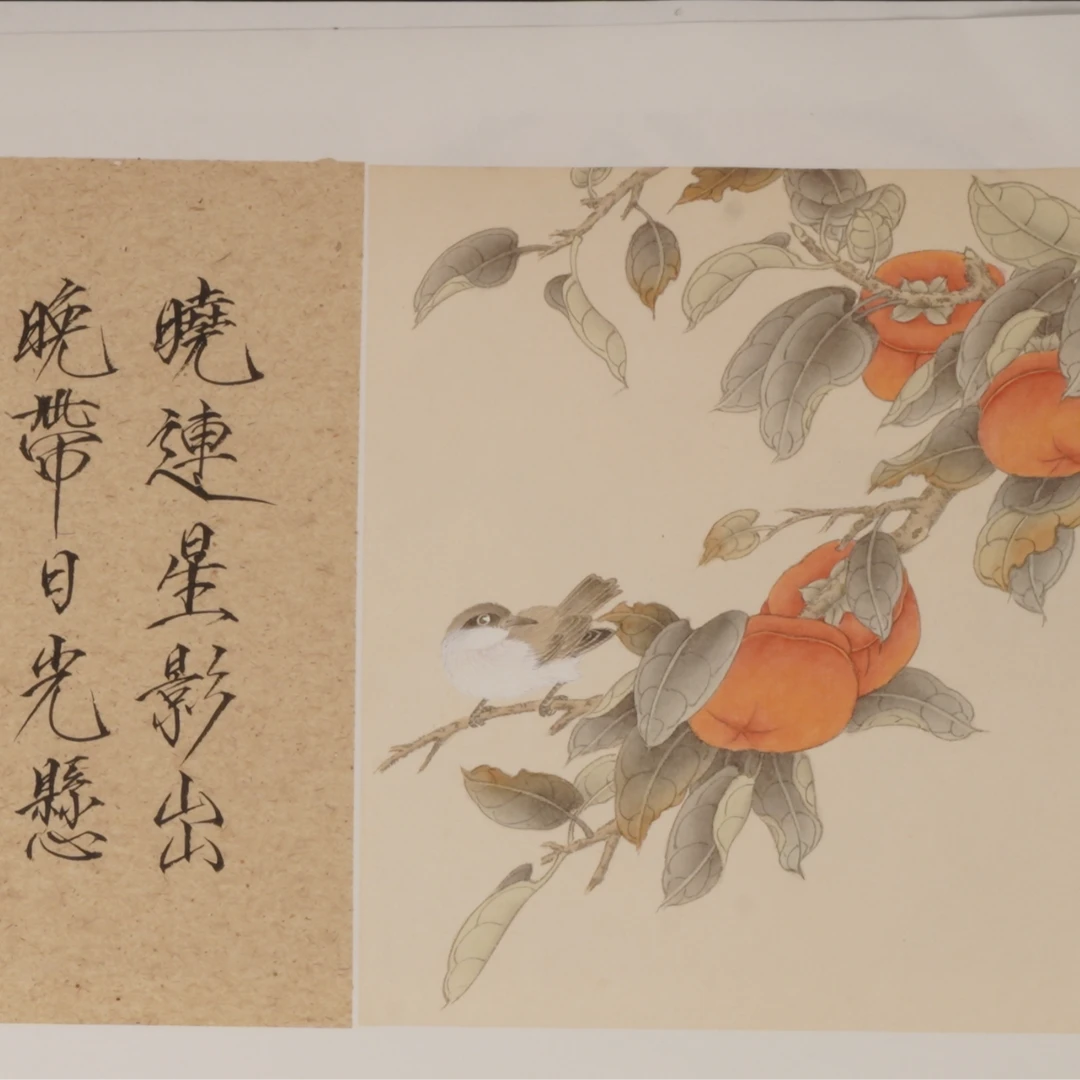 曉連星影出
晚帶日光懸